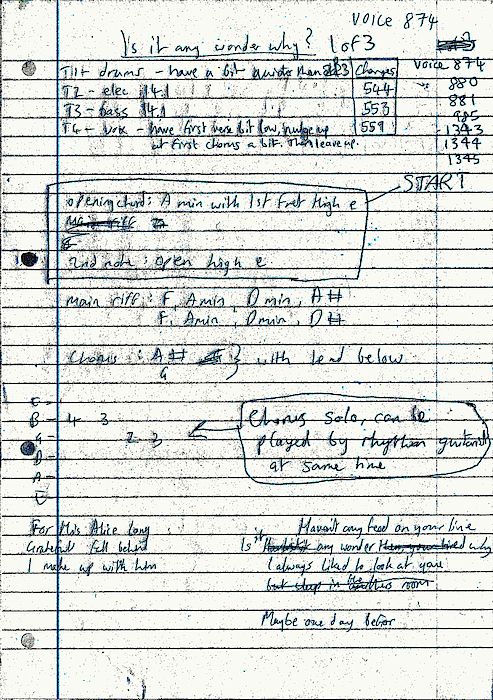 VOICE 874
Is it any wonder why? 1 of 3
T1+ drums - have a bit quieter than Changes
Voice 874
T2 - elec 14.1 544
880
T3 - bass 14.1 553
881
T4 - voice - have first verse bit low, nudge up 559
885
at first chorus a bit. Then leave up.
1343
1344
1345
START
opening chord: A min with 1st fret High e
2nd note: open high e
Main riff: F, Amin, Dmin, A#
F, Amin, Dmin, D#
Chorus: A# } with lead below
G
E -
B - 4 3
G - 2 3
D -
A -
E
Chorus Solo, can be
played by rhythm guitarist
at same time
For His Alice long
fell behind
I make up with him
Haven't any feed on your line
Is it any wonder why
I always liked to look at you
but sleep in room
Maybe one day befor